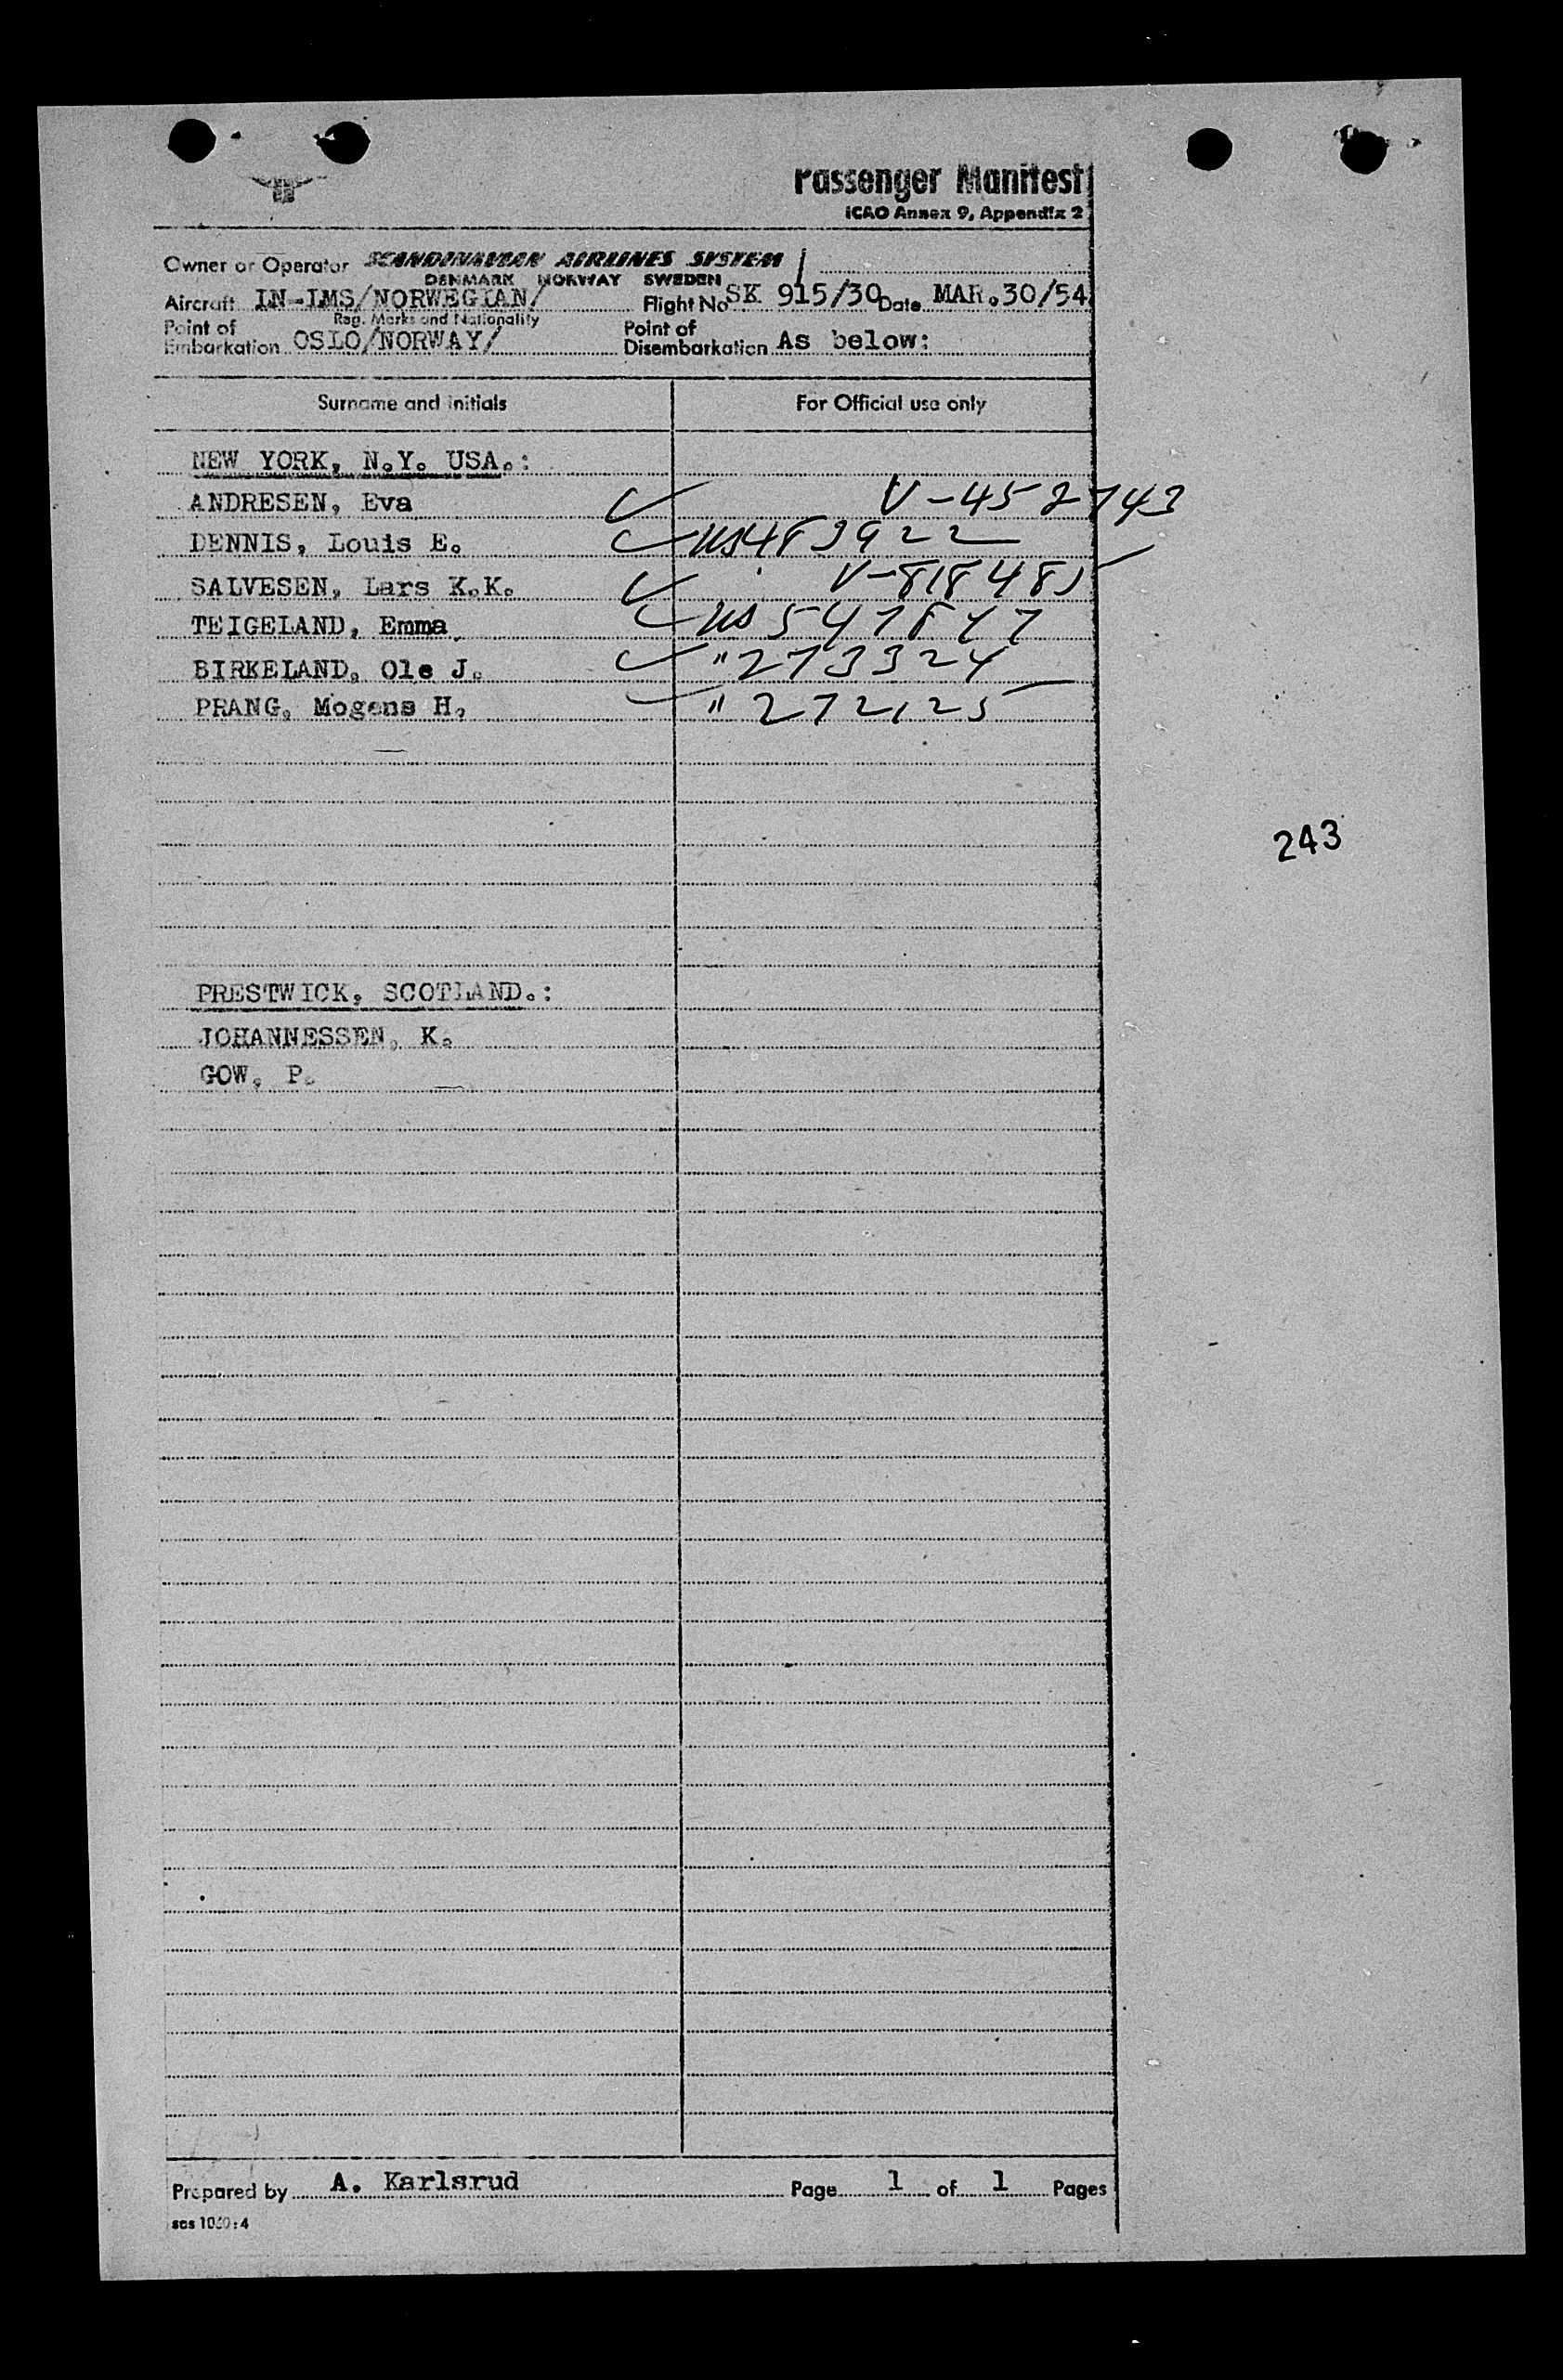 Passenger Manifest
ICAO Annex 9, Appendix 2
Owner or Operator SCANDINAVIAN AIRLINES SYSTEM
DENMARK NORWAY SWEDEN
Aircraft LN-LMS/NORWEGIAN/ Flight No SK 915/30 Date MAR.30/54
Reg. Marks and Nationality
Point of Embarkation OSLO/NORWAY/ Point of Disembarkation As below:
Surname and initials For Official use only
NEW YORK, N.Y. USA.:
ANDRESEN, Eva V-452743
DENNIS, Louis E. US 483922
SALVESEN, Lars K.K. V-818485
TEIGELAND, Emma US 547847
BIRKELAND, Ole J. " 273324
PRANG, Mogens H. " 272125
243
PRESTWICK, SCOTLAND.:
JOHANNESSEN, K.
GOW, P.
Prepared by A. Karlsrud Page 1 of 1 Pages